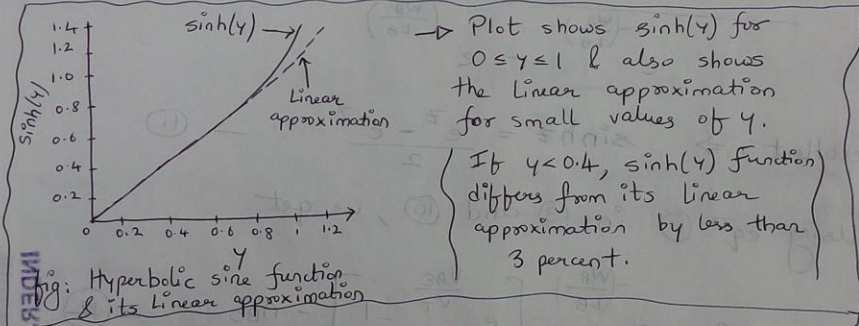 1.4
1.2
1.0
0.8
0.6
0.4
0.2
sinh(y)
sinh(y)
Linear
approximation
0 0.2 0.4 0.6 0.8 1 1.2
y
fig: Hyperbolic sine function
& its Linear approximation
→ Plot shows sinh(y) for
0 ≤ y ≤ 1 & also shows
the Linear approximation
for small values of y.
If y < 0.4, sinh(y) function
differs from its linear
approximation by less than
3 percent.
INDER